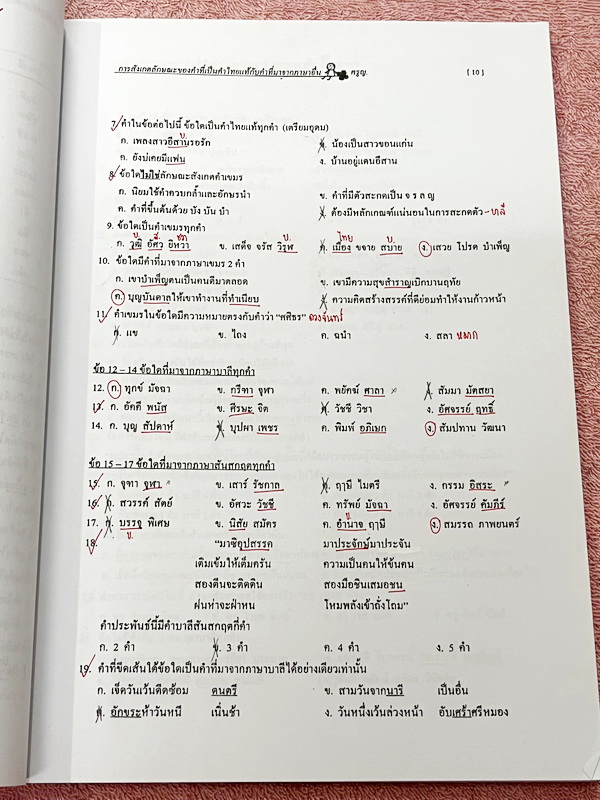 การสังเกตลักษณะของคำที่เป็นคำไทยแท้กับคำที่มาจากภาษาอื่น ครูญ. [ 10 ]
7. คำในข้อต่อไปนี้ ข้อใดเป็นคำไทยแท้ทุกคำ (เตรียมอุดม)
ก. เพลงสาวอีสานรอรัก ข. น้องเป็นสาวขอนแก่น
ค. ยังบ่เคยมีแฟน ง. บ้านอยู่แดนอีสาน
8. ข้อใดไม่ใช่ลักษณะสังเกตคำเขมร
ก. นิยมใช้คำควบกล้ำและอักษรนำ ข. คำที่มีตัวสะกดเป็น จ ร ล ญ
ค. คำที่ขึ้นต้นด้วย บัง บัน บำ ง. ต้องมีหลักเกณฑ์แน่นอนในการสะกดตัว
9. ข้อใดเป็นคำเขมรทุกคำ ไทย
ก. วุฒิ อัศว ยิหวา ข. เสด็จ จรัส วิรุฬ ค. เมือง ขจาย สบาย ง. เสวย โปรด บำเพ็ญ
10. ข้อใดมีคำที่มาจากภาษาเขมร 2 คำ
ก. เขาบำเพ็ญตนเป็นคนดีมาตลอด ข. เขามีความสุขสำราญเบิกบานฤทัย
ค. บุญบันดาลให้เขาทำงานที่ทำเนียบ ง. ความคิดสร้างสรรค์ที่ดีย่อมทำให้งานก้าวหน้า
11. คำเขมรในข้อใดมีความหมายตรงกับคำว่า "ศศิธร" ดวงจันทร์
ก. แข ข. ไถง ค. ฉนำ ง. สลา หมาก
ข้อ 12 – 14 ข้อใดที่มาจากภาษาบาลีทุกคำ
12. ก. ทุกข์ มัจฉา ข. กรีฑา จุฬา ค. พยัคฆ์ ศาลา ง. สัมมา มัตสยา
13. ก. อัคคี พนัส ข. ศีรษะ จิต ค. วัชชี วิชา ง. อัศจรรย์ ฤทธิ์
14. ก. บุญ สัปดาห์ ข. บุปผา เพชร ค. พิมพ์ อภิเษก ง. สัมปทาน วัฒนา
ข้อ 15 – 17 ข้อใดที่มาจากภาษาสันสกฤตทุกคำ
15. ก. จุฑา จุฬา ข. เสาร์ รัชกาล ค. ฤาษี ไมตรี ง. กรรม อิสระ
16. ก. สวรรค์ สัตย์ ข. อัศวะ วัชชี ค. ทรัพย์ มัจฉา ง. อัศจรรย์ คัมภีร์
17. ก. บรรจุ พิเศษ ข. นิสัย สมัคร ค. อำนาจ ฤาษี ง. สมรรถ ภาพยนตร์
18. "มาซิอุปสรรค มาประจักษ์มาประจัน
เติมเข้มให้เต็มครัน ความเป็นคนให้ข้นคน
สองตีนจะติดดิน สองมือชินเสมอชน
ฝนห่าจะฝ่าหน โหมพลังเข้าถั่งโถม"
คำประพันธ์นี้มีคำบาลีสันสกฤตกี่คำ
ก. 2 คำ ข. 3 คำ ค. 4 คำ ง. 5 คำ
19. คำที่ขีดเส้นใต้ข้อใดเป็นคำที่มาจากภาษาบาลีได้อย่างเดียวเท่านั้น
ก. เจ็ดวันเว้นดีดซ้อม ดนตรี ข. สามวันจากนารี เป็นอื่น
ค. อักขระห้าวันหนี เนิ่นช้า ง. วันหนึ่งเว้นล่วงหน้า อับเศร้าศรีหมอง